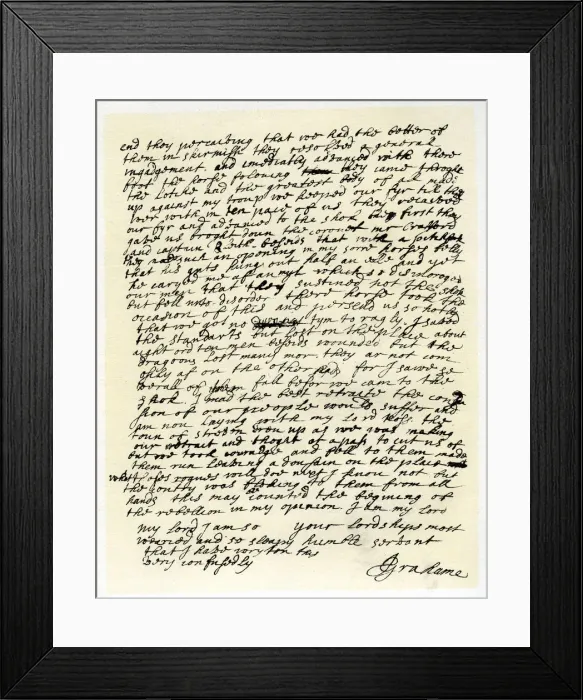 end they perceaving that we had the better of
them in skirmish they resolved a general
ingadgement and imediatly advanced with there
foot the horse folouing they came throght
the Lotche and the greatest body of all made
up against my troup we keeped our fyr till they
wer with in ten pace of us they recaived
our fyr and advanced to the shok the first they
gave us broght down the coronet mr Crafford
and captain Bleith besides that with a
they mad such an opening in my sorre horses belly
that his guts hung out half an elle and yet
he caryed me af an myl which so discoroged
our men that they sustined not the shok
but fell into disorder there horse took the
occasion of this and perseud us so hotly
that we got no tym to rayly I saved
the standarts but lost on the place about
aight ord ten men besids wounded but the
dragoons lost many mor they ar not com
esily af on the other sid for I sawe se
verall of them fall befor we cam to the
shok I mad the best retraite the conf
sion of our people would suffer and
I am now laying with my Lord Rose the
toun of Streven drew up as we was making
our retrait and thoght of a pass to cut us of
but we took couradge and fell to them made
them run leaving a dousain on the place
what thes rogues will doe next I know not but
the contry was floking to them from all
hands this may be counted the begining of
the rebellion in my opinion I am my lord
my lord I am so your lordships most
wearied and so sleapy humble servant
that I have wryton this
very confusedly JGrahame